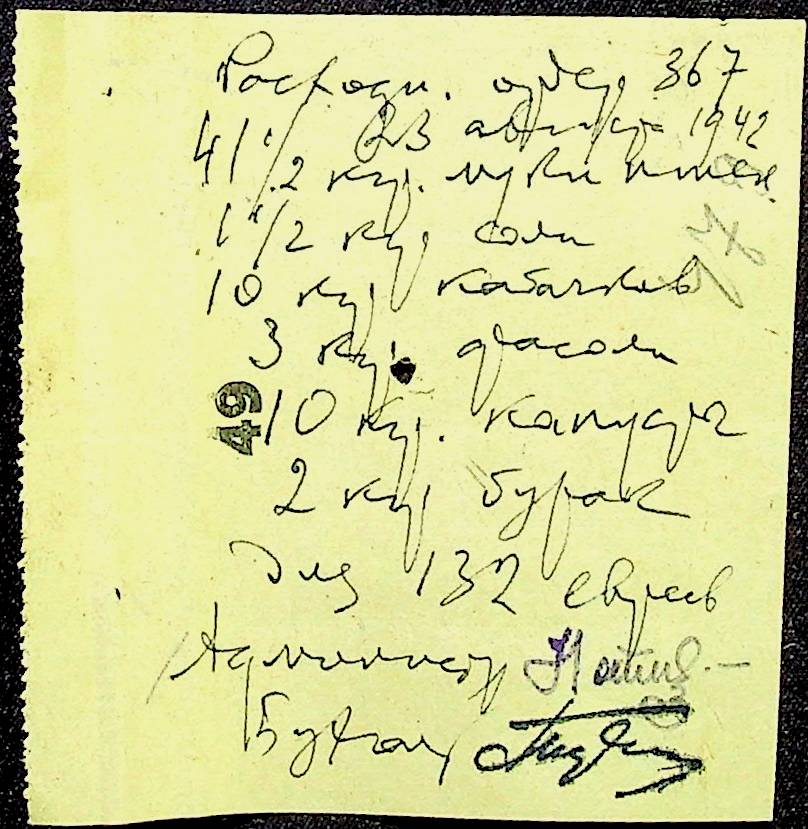 Расходн. ордер 367
23 августа 1942
41 1/2 кгр. муки пшен.
1 1/2 кгр. соли
10 кгр. кабачков
3 кгр. фасоли
49
10 кгр. капусты
2 кгр. бурак
Для 132 евреев
Администр
Бухгалт